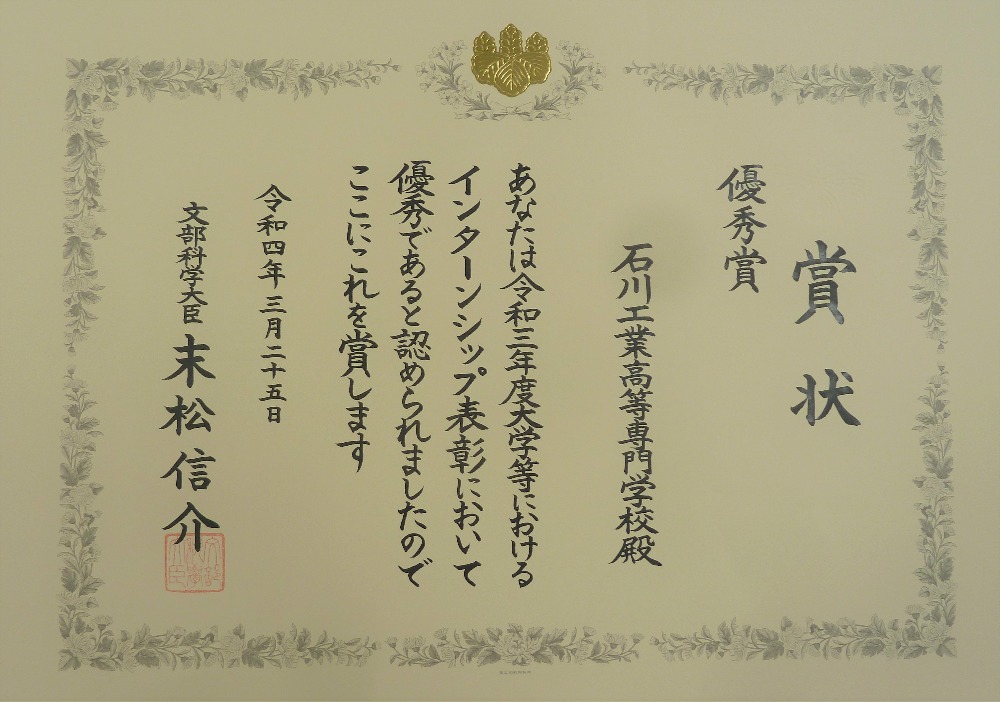 賞状
優秀賞
石川工業高等専門学校殿
あなたは令和三年度大学等における
インターンシップ表彰において
優秀であると認められましたので
ここにこれを賞します
令和四年三月二十五日
文部科学大臣 末松信介